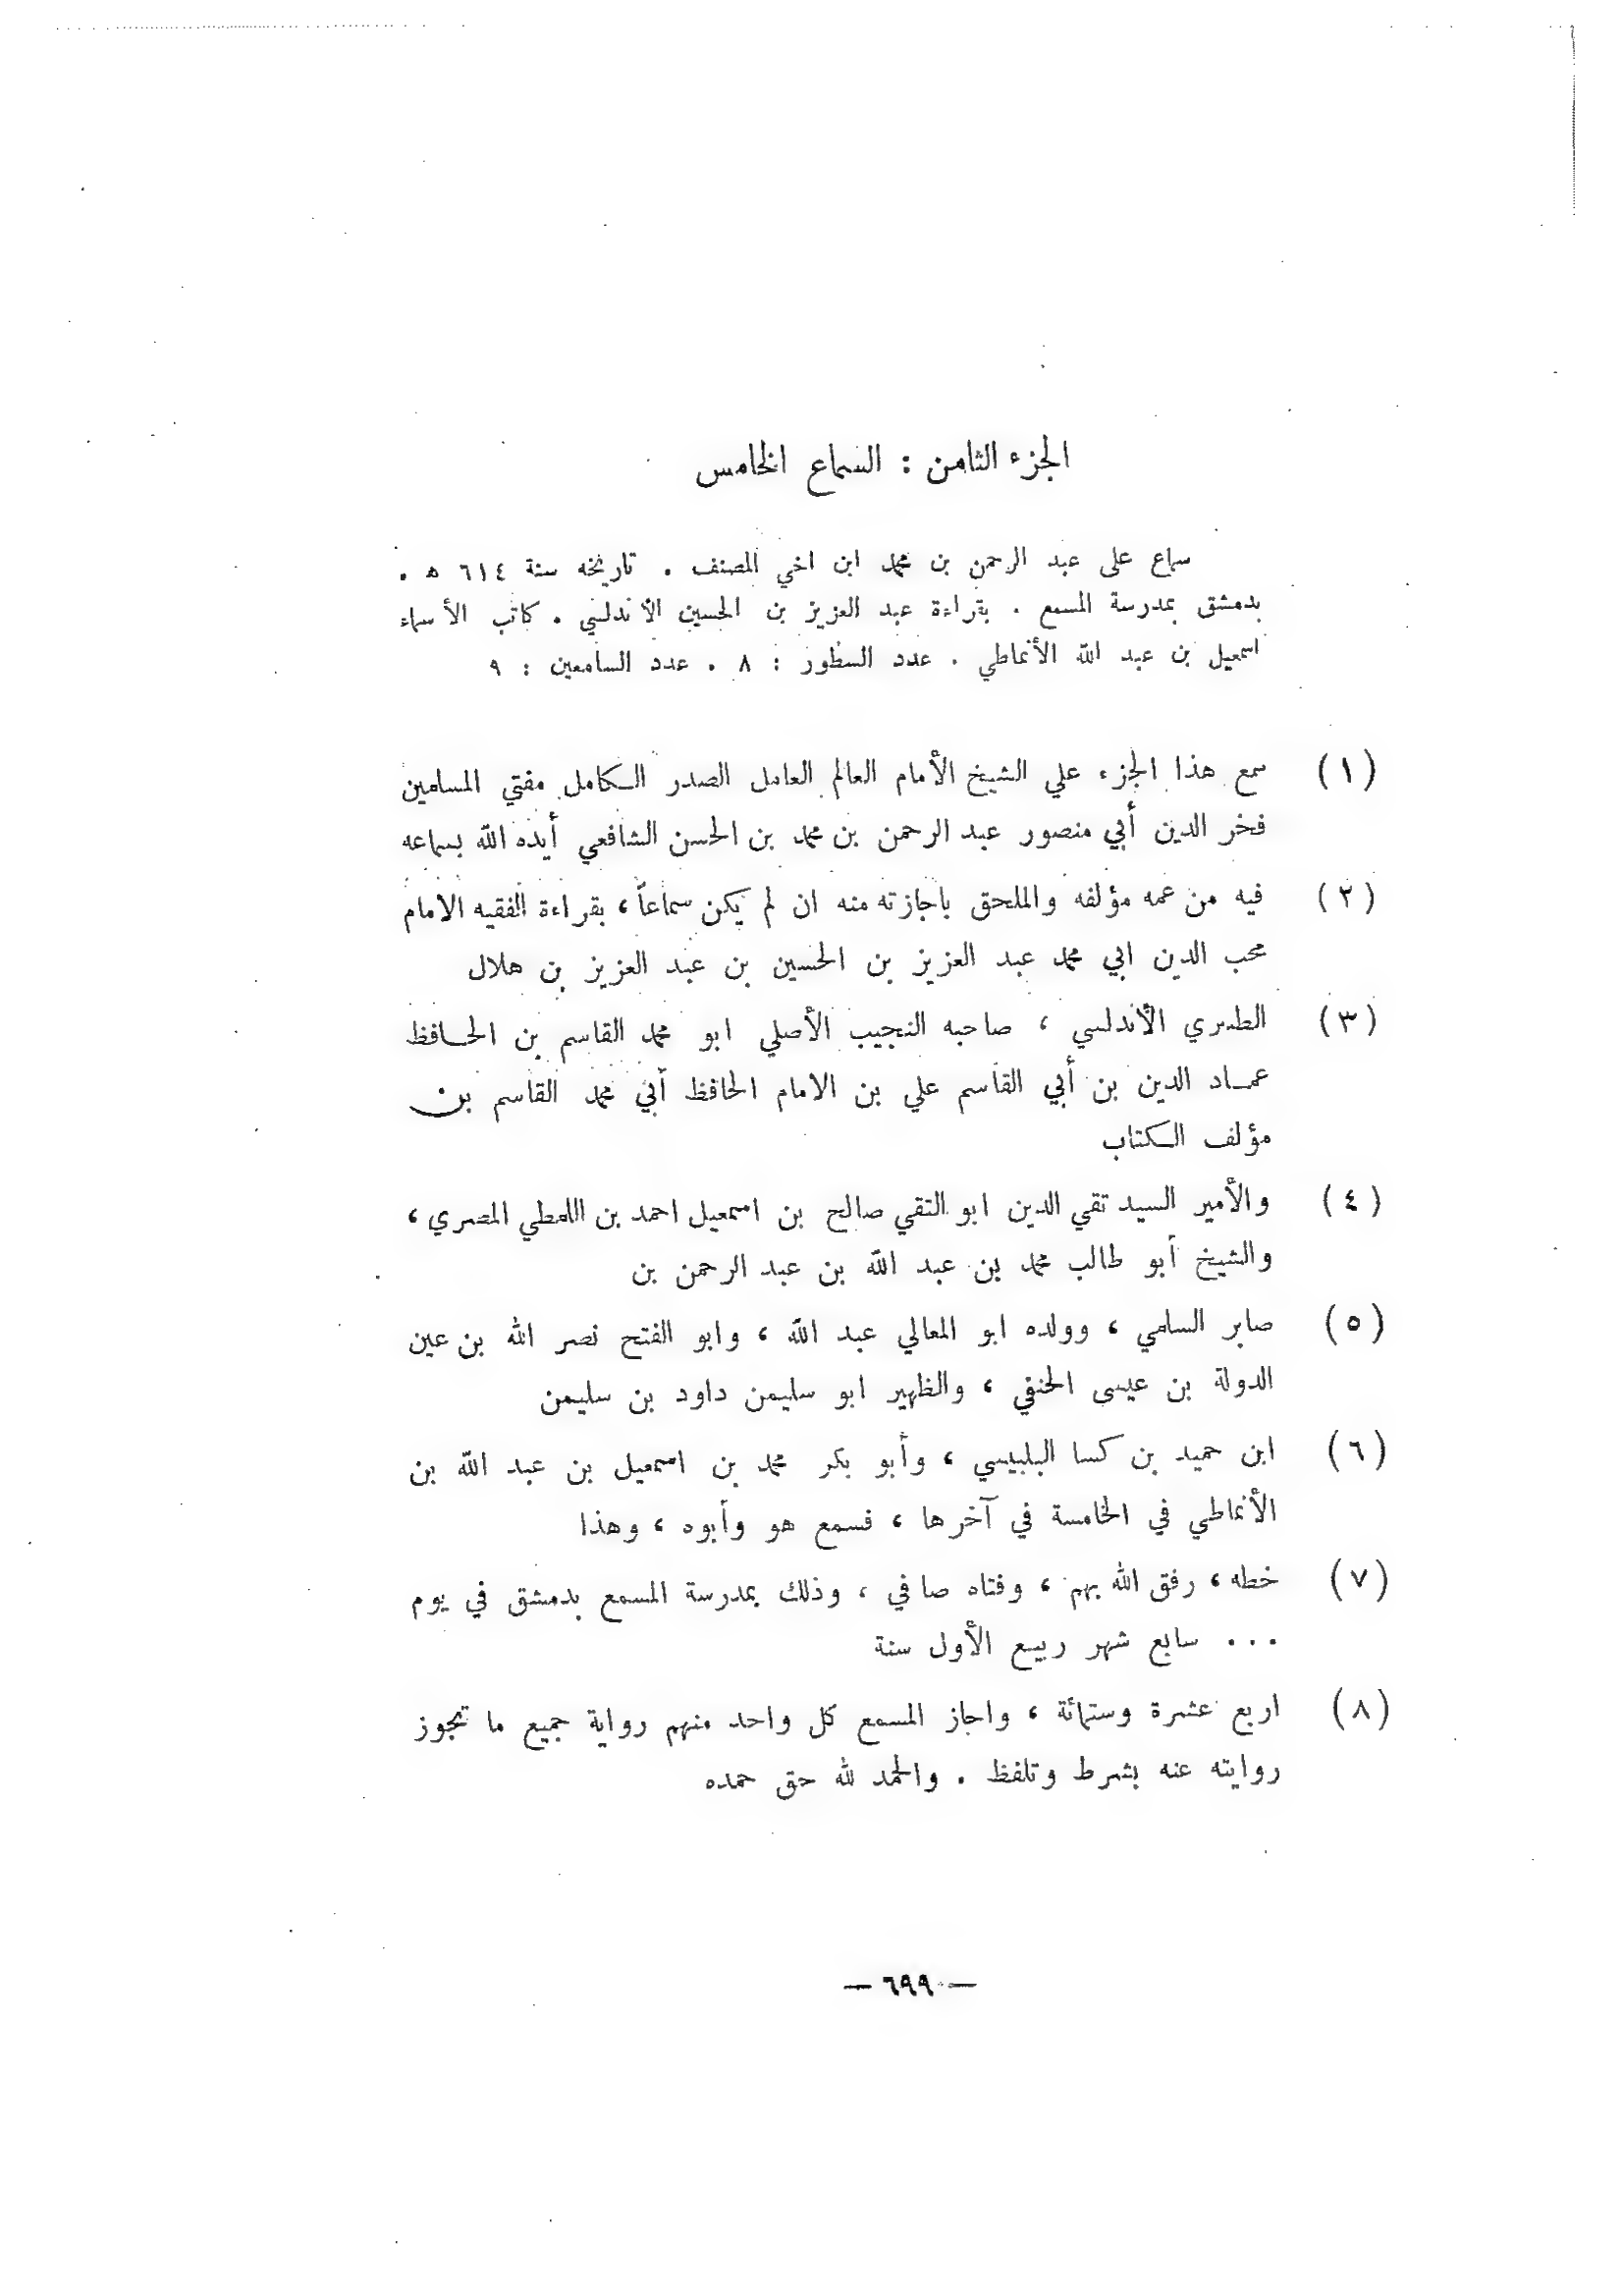 الجزء الثامن : السماع الخامس
سماع على عبد الرحمن بن محمد ابن اخي المصنف . تاريخه سنة ٦١٤ ه .
بدمشق بمدرسة المسمع . بقراءة عبد العزيز بن الحسين الأندلسي . كاتب الأسماء
اسمعيل بن عبد الله الأنماطي . عدد السطور : ٨ . عدد السامعين : ٩
(١) سمع هذا الجزء علي الشيخ الأمام العالم العامل الصدر الكامل مفتي المسلمين
فخر الدين أبي منصور عبد الرحمن بن محمد بن الحسن الشافعي أيده الله بسماعه
(٢) فيه من عمه مؤلفه والملحق باجازته منه ان لم يكن سماعاً ، بقراءة الفقيه الامام
محب الدين ابي محمد عبد العزيز بن الحسين بن عبد العزيز بن هلال
(٣) الطبري الأندلسي ، صاحبه النجيب الأصلي ابو محمد القاسم بن الحافظ
عماد الدين بن أبي القاسم علي بن الامام الحافظ أبي محمد القاسم بن
مؤلف الكتاب
(٤) والأمير السيد تقي الدين ابو التقي صالح بن اسمعيل احمد بن اللمطي المصري ،
والشيخ أبو طالب محمد بن عبد الله بن عبد الرحمن بن
(٥) صابر السلمي ، وولده ابو المعالي عبد الله ، وابو الفتح نصر الله بن عين
الدولة بن عيسى الحنفي ، والظهير ابو سليمن داود بن سليمن
(٦) ابن حميد بن كسا البلبيسي ، وأبو بكر محمد بن اسمعيل بن عبد الله بن
الأنماطي في الخامسة في آخرها ، فسمع هو وأبوه ، وهذا
(٧) خطه ، رفق الله بهم ، وفتاه صافي ، وذلك بمدرسة المسمع بدمشق في يوم
... سابع شهر ربيع الأول سنة
(٨) اربع عشرة وستمائة ، واجاز المسمع كل واحد منهم رواية جميع ما تجوز
روايته عنه بشرط وتلفظ . والحمد لله حق حمده
— ٦٩٩ —